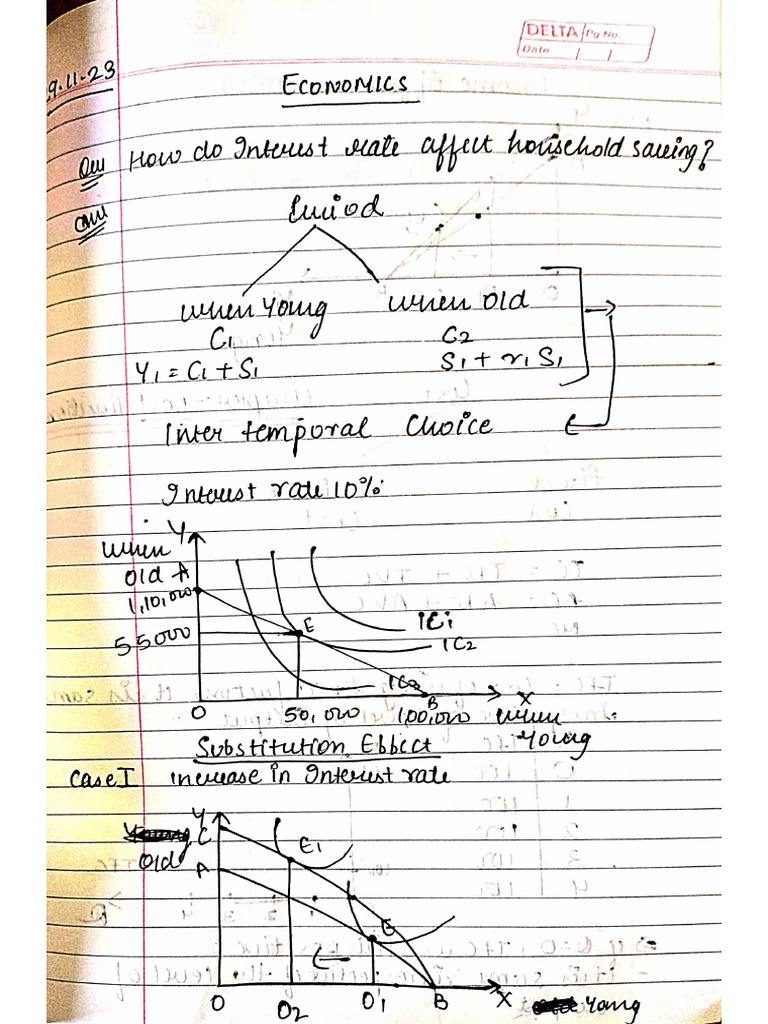 DELTA Pg No.
Date / /
9.11.23
ECONOMICS
Que How do Interest rate affect household saving?
Ans Period
when young when old
C1 C2
Y1 = C1 + S1 S1 + r1 S1
Inter temporal choice
Interest rate 10%
Y
when
old A
1,10,000
55000 E IC1
IC2
IC3
B X
0 50,000 1,00,000 when
young
Substitution Effect
Case I increase in Interest rate
Y
C E1
Old
A
E
0 O2 O'1 B X Young